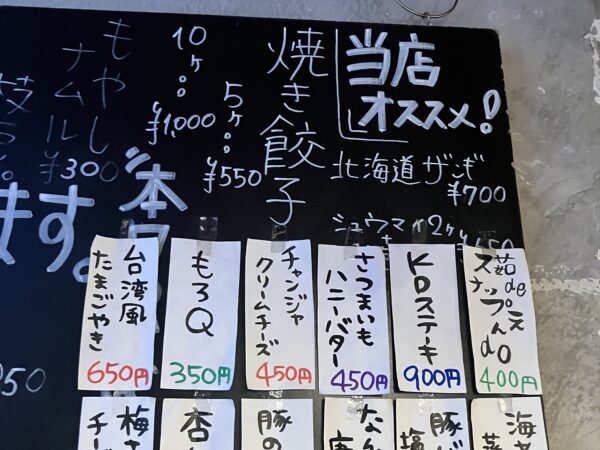 当店
オススメ!
北海道 ザンギ
¥700
シュウマイ2ケ
焼き餃子
5ケ…¥550
10ケ…¥1,000
もやし
ナムル
¥300
ます。
本
茹de
スナップえん
do
400円
KDステーキ
900円
さつまいも
ハニーバター
450円
チャンジャ
クリームチーズ
450円
もろQ
350円
台湾風
たまごやき
650円
豚の
梅さ
チー